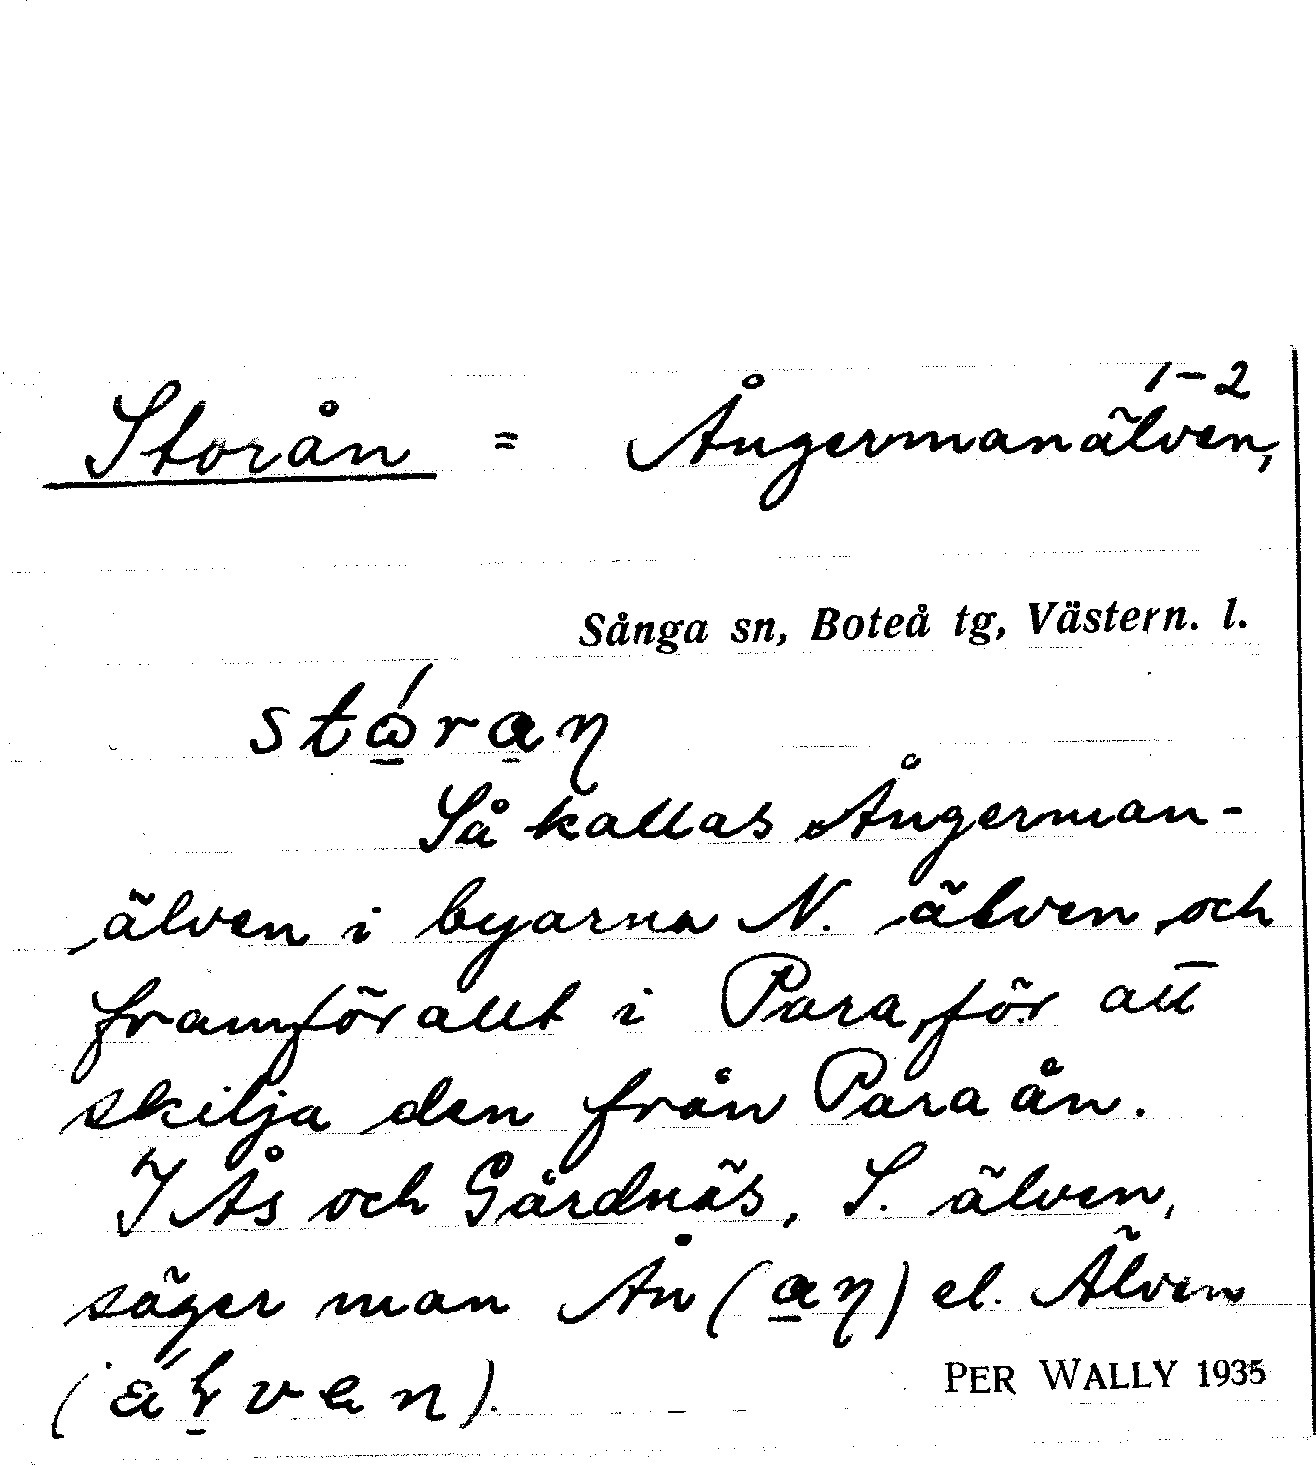 1-2
Storån = Ångermanälven,
Sånga sn, Boteå tg, Västern. l.
Så kallas Ångerman-
älven i byarna N. älven och
framförallt i Para, för att
skilja den från Paraån.
I Ås och Gårdnäs, S. älven,
säger man Ån (aŋ) el. Älven
PER WALLY 1935